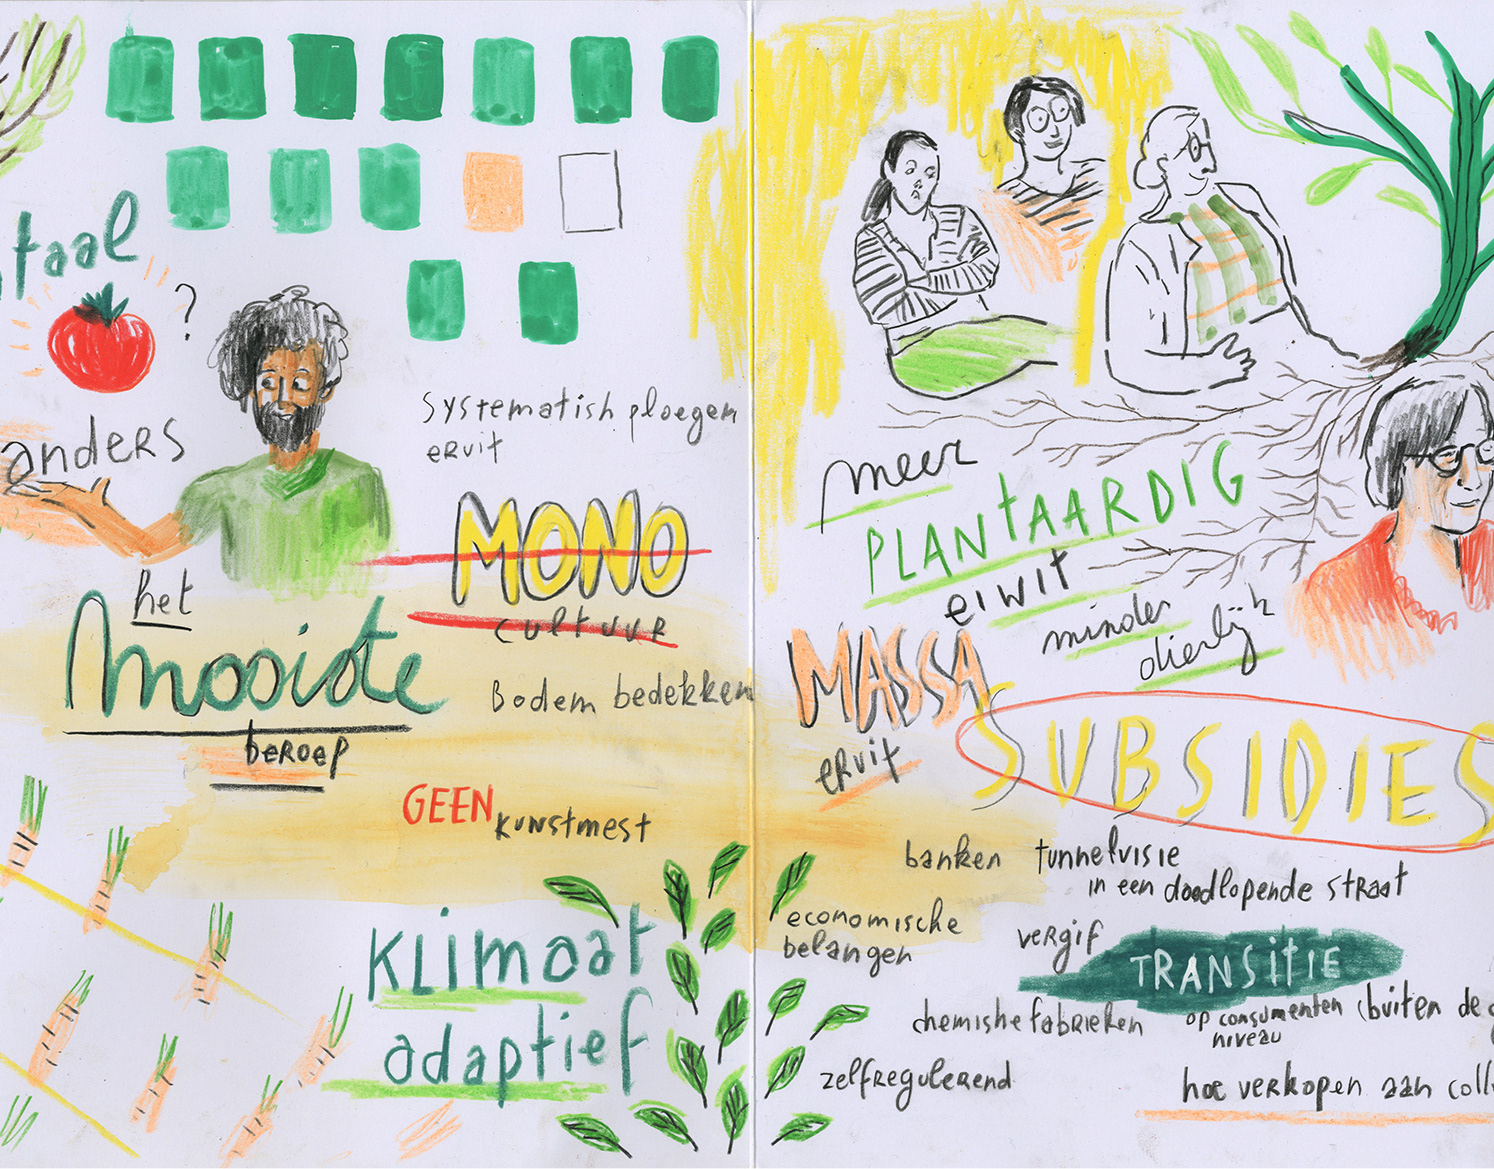 taal
?
anders
het
Mooiste
beroep
Systematish ploegen
eruit
MONO
cultuur
Bodem bedekken
GEEN kunstmest
klimaat
adaptief
meer
PLANTAARDIG
eiwit
minder
dierlijk
MASSA
eruit
SUBSIDIES
banken
tunnelvisie
in een doodlopende straat
economische
belangen
vergif
TRANSITIE
chemishe fabrieken
op consumenten (buiten de
niveau
zelfregulerend
hoe verkopen aan coll